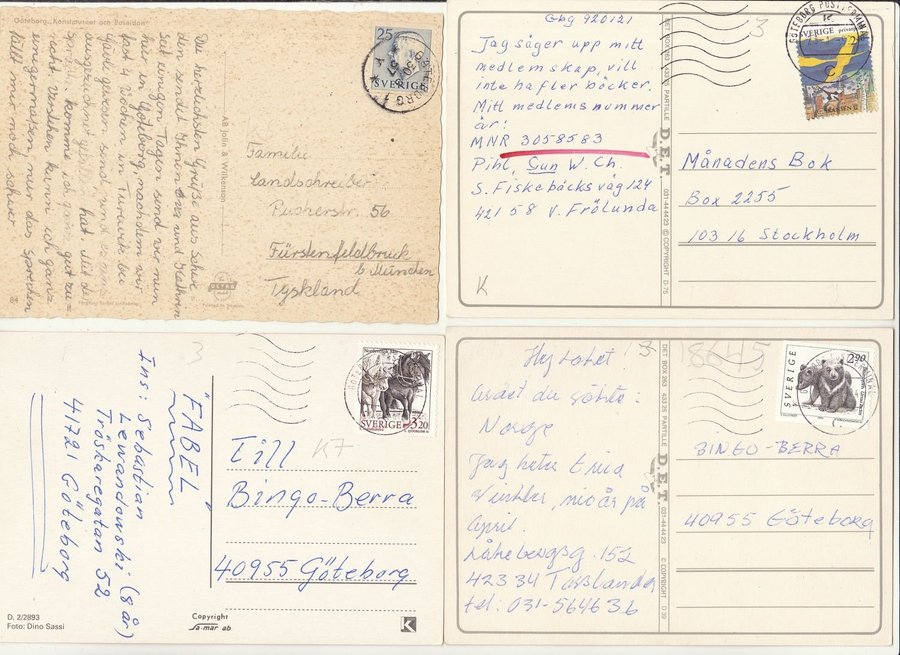 Göteborg. "Konstmuseet och Poseidon"
Die herzlichsten Grüße aus Schwe-
den sendet Ihnen und Kathrin
seit einigen Tagen sind wir nun
hier in Göteborg, nachdem wir
fast 4 Wochen in bei
Gävle gewesen sind und
ausgezeichnet hat. Mit d.
komme ich ganz gut zu-
recht. Verstehen kann ich ganz
einigermaßen, nur das Sprechen
fällt mir noch schwer.
84
AB John & Wilkenson
ULTRA
25
SVERIGE
GÖTEBORG 1
Familie
Landschreiber
Pucherstr. 56
Fürstenfeldbruck
b. München
Tyskland
Gbg 920121
Jag säger upp mitt
medlemskap, vill
inte ha fler böcker.
Mitt medlems nummer
är!
MNR 3058583
Pihl, Gun W. Ch.
S. Fiskebäcks väg 124
421 58 V. Frölunda
K
3
DET BOX 263 433 25 PARTILLE
D.E.T.
031-44 44 23 © COPYRIGHT D-76
GÖTEBORG POSTTERMINAL
SVERIGE
Månadens Bok
Box 2255
103 16 Stockholm
3
"FÄBEL"
Ins: Sebastian
Lewandowski (8 år)
Tröskaregatan 52
41721 Göteborg
D. 2/2893
Foto: Dino Sassi
Copyright
sa-mar ab
K
SVERIGE 3.20
K7
Till
Bingo-Berra
40955 Göteborg
Hej Lotet!
Svaret du sökte:
Norge
Jag heter Erica
nio år på
April.
152
423 34 Torslanda
tel: 031-564636
3
18645
DET BOX 263 433 25 PARTILLE
D.E.T.
031-44 44 23
© COPYRIGHT D 39
SVERIGE
2.90
BINGO-BERRA
40955 Göteborg